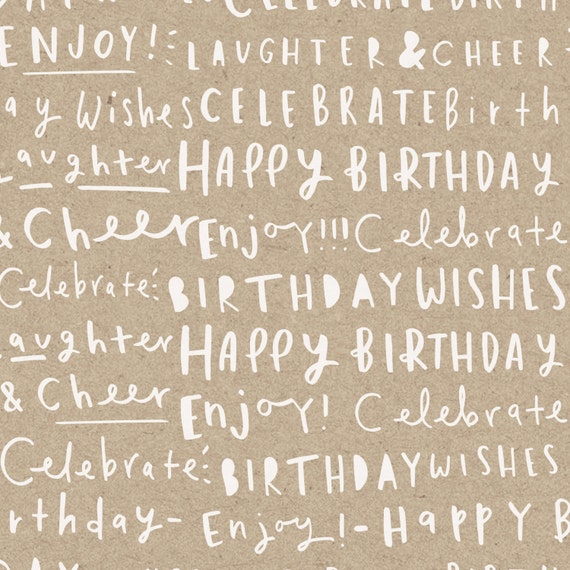 CELEBRATE BIRTH
ENJOY! LAUGHTER & CHEER
ay Wishes CELEBRATE Birth
Laughter HAPPY BIRTHDAY
& Cheer Enjoy!!! Celebrate
Celebrate: BIRTHDAY WISHES
Laughter HAPPY BIRTHDAY
& Cheer Enjoy! Celebrate
Celebrate: BIRTHDAY WISHES
rthday- Enjoy!- HAPPY B